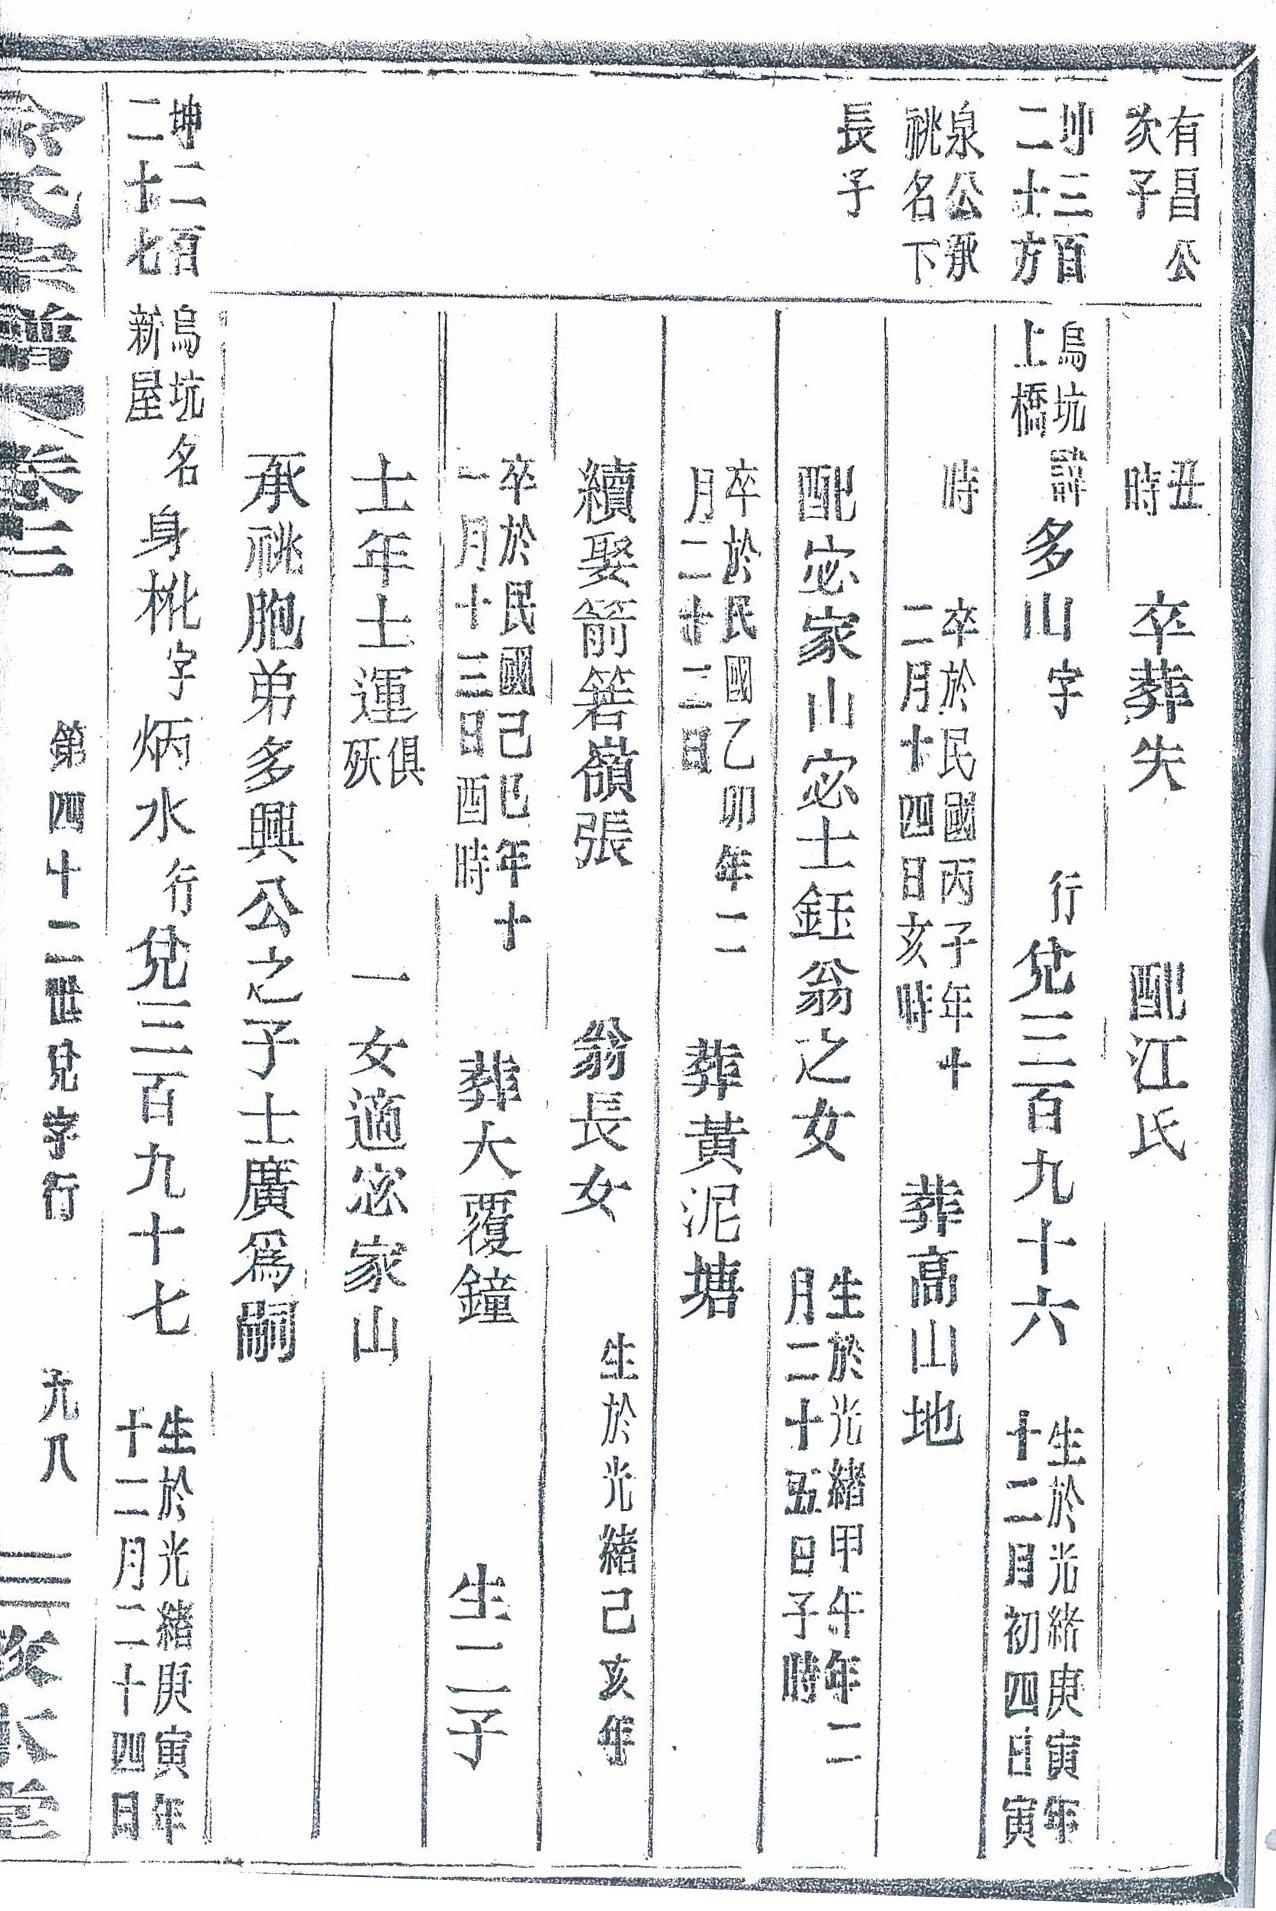 有昌公
次子
丑
時
卒葬失
配江氏
坤三百
二十方
烏坑
上橋
諱多山字
行兌三百九十六
生於光緒庚寅年
十二月初四日寅
泉公承
祧名下
時
卒於民國丙子年十
二月十四日亥時
葬高山地
長子
配宓家山宓士鈺翁之女
生於光緒甲午年二
月二十五日子時
卒於民國乙卯年二
月二十二日
葬黃泥塘
續娶箭箬嶺張
翁長女
生於光緒己亥年
卒於民國己巳年十
一月十三日酉時
葬大覆鐘
生二子
士年士運
俱
殀
一女適宓家山
承祧胞弟多興公之子士廣爲嗣
坤二百
二十七
烏坑
新屋
名身枇字炳水行兌三百九十七
生於光緒庚寅年
十二月二十四日
宗譜 卷二
第四十二世兌字行
九八
三孜本堂